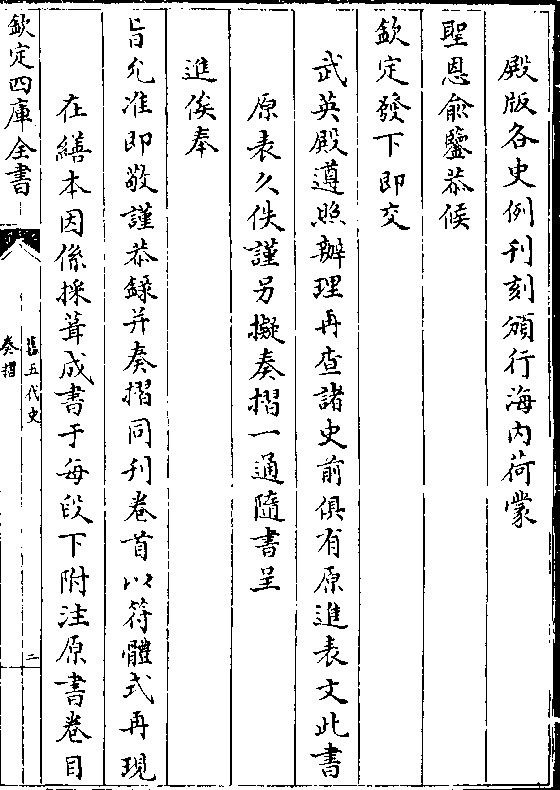 殿版各史例刊刻頒行海内荷蒙
聖恩俞鑒恭候
欽定發下即交
武英殿遵照辦理再查諸史前俱有原進表文此書
原表久佚謹另擬奏摺一通隨書呈
進俟奉
旨允准即敬謹恭録并奏摺同刊卷首以符體式再現
在繕本因係採葺成書于每段下附注原書卷目
欽定四庫全書
舊五代史
奏摺
二